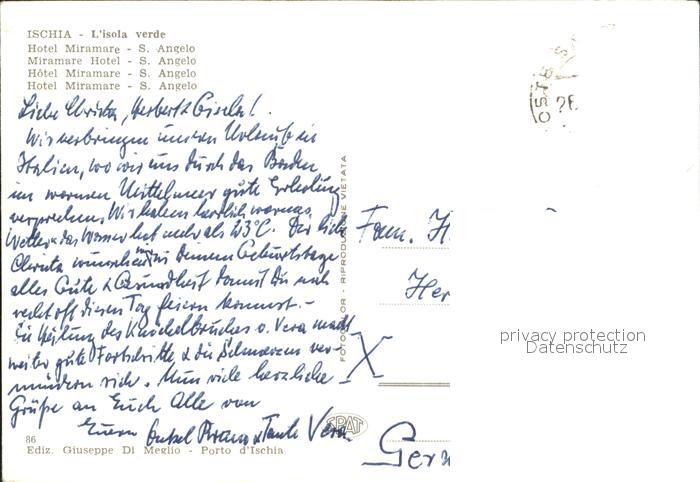 ISCHIA - L'isola verde
Hotel Miramare - S. Angelo
Miramare Hotel - S. Angelo
Hôtel Miramare - S. Angelo
Hotel Miramare - S. Angelo
Liebe Christa, Herbert & Gisela!
Wir verbringen unseren Urlaub in
Italien, wo wir uns durch das Baden
im warmen Mittelmeer gute Erholung
versprechen. Wir haben herrlich warmes
Wetter & das Wasser hat mehr als 23°C. Dir liebe
Christa wünschen wir zu deinem Geburtstage
alles Gute & Gesundheit damit Du noch
recht oft diesen Tag feiern kannst. -
Die Heilung des Knöchelbruches v. Vera macht
weiter gute Fortschritte & die Schmerzen ver-
mindern sich. Nun viele herzliche
Grüße an Euch Alle von
Euern Onkel Franz & Tante Vera.
86
Ediz. Giuseppe Di Meglio - Porto d'Ischia
FOTOCOLOR - RIPRODUZIONE VIETATA
OSTE S
26
Fam. H
Her
privacy protection
Datenschutz
X
Ger